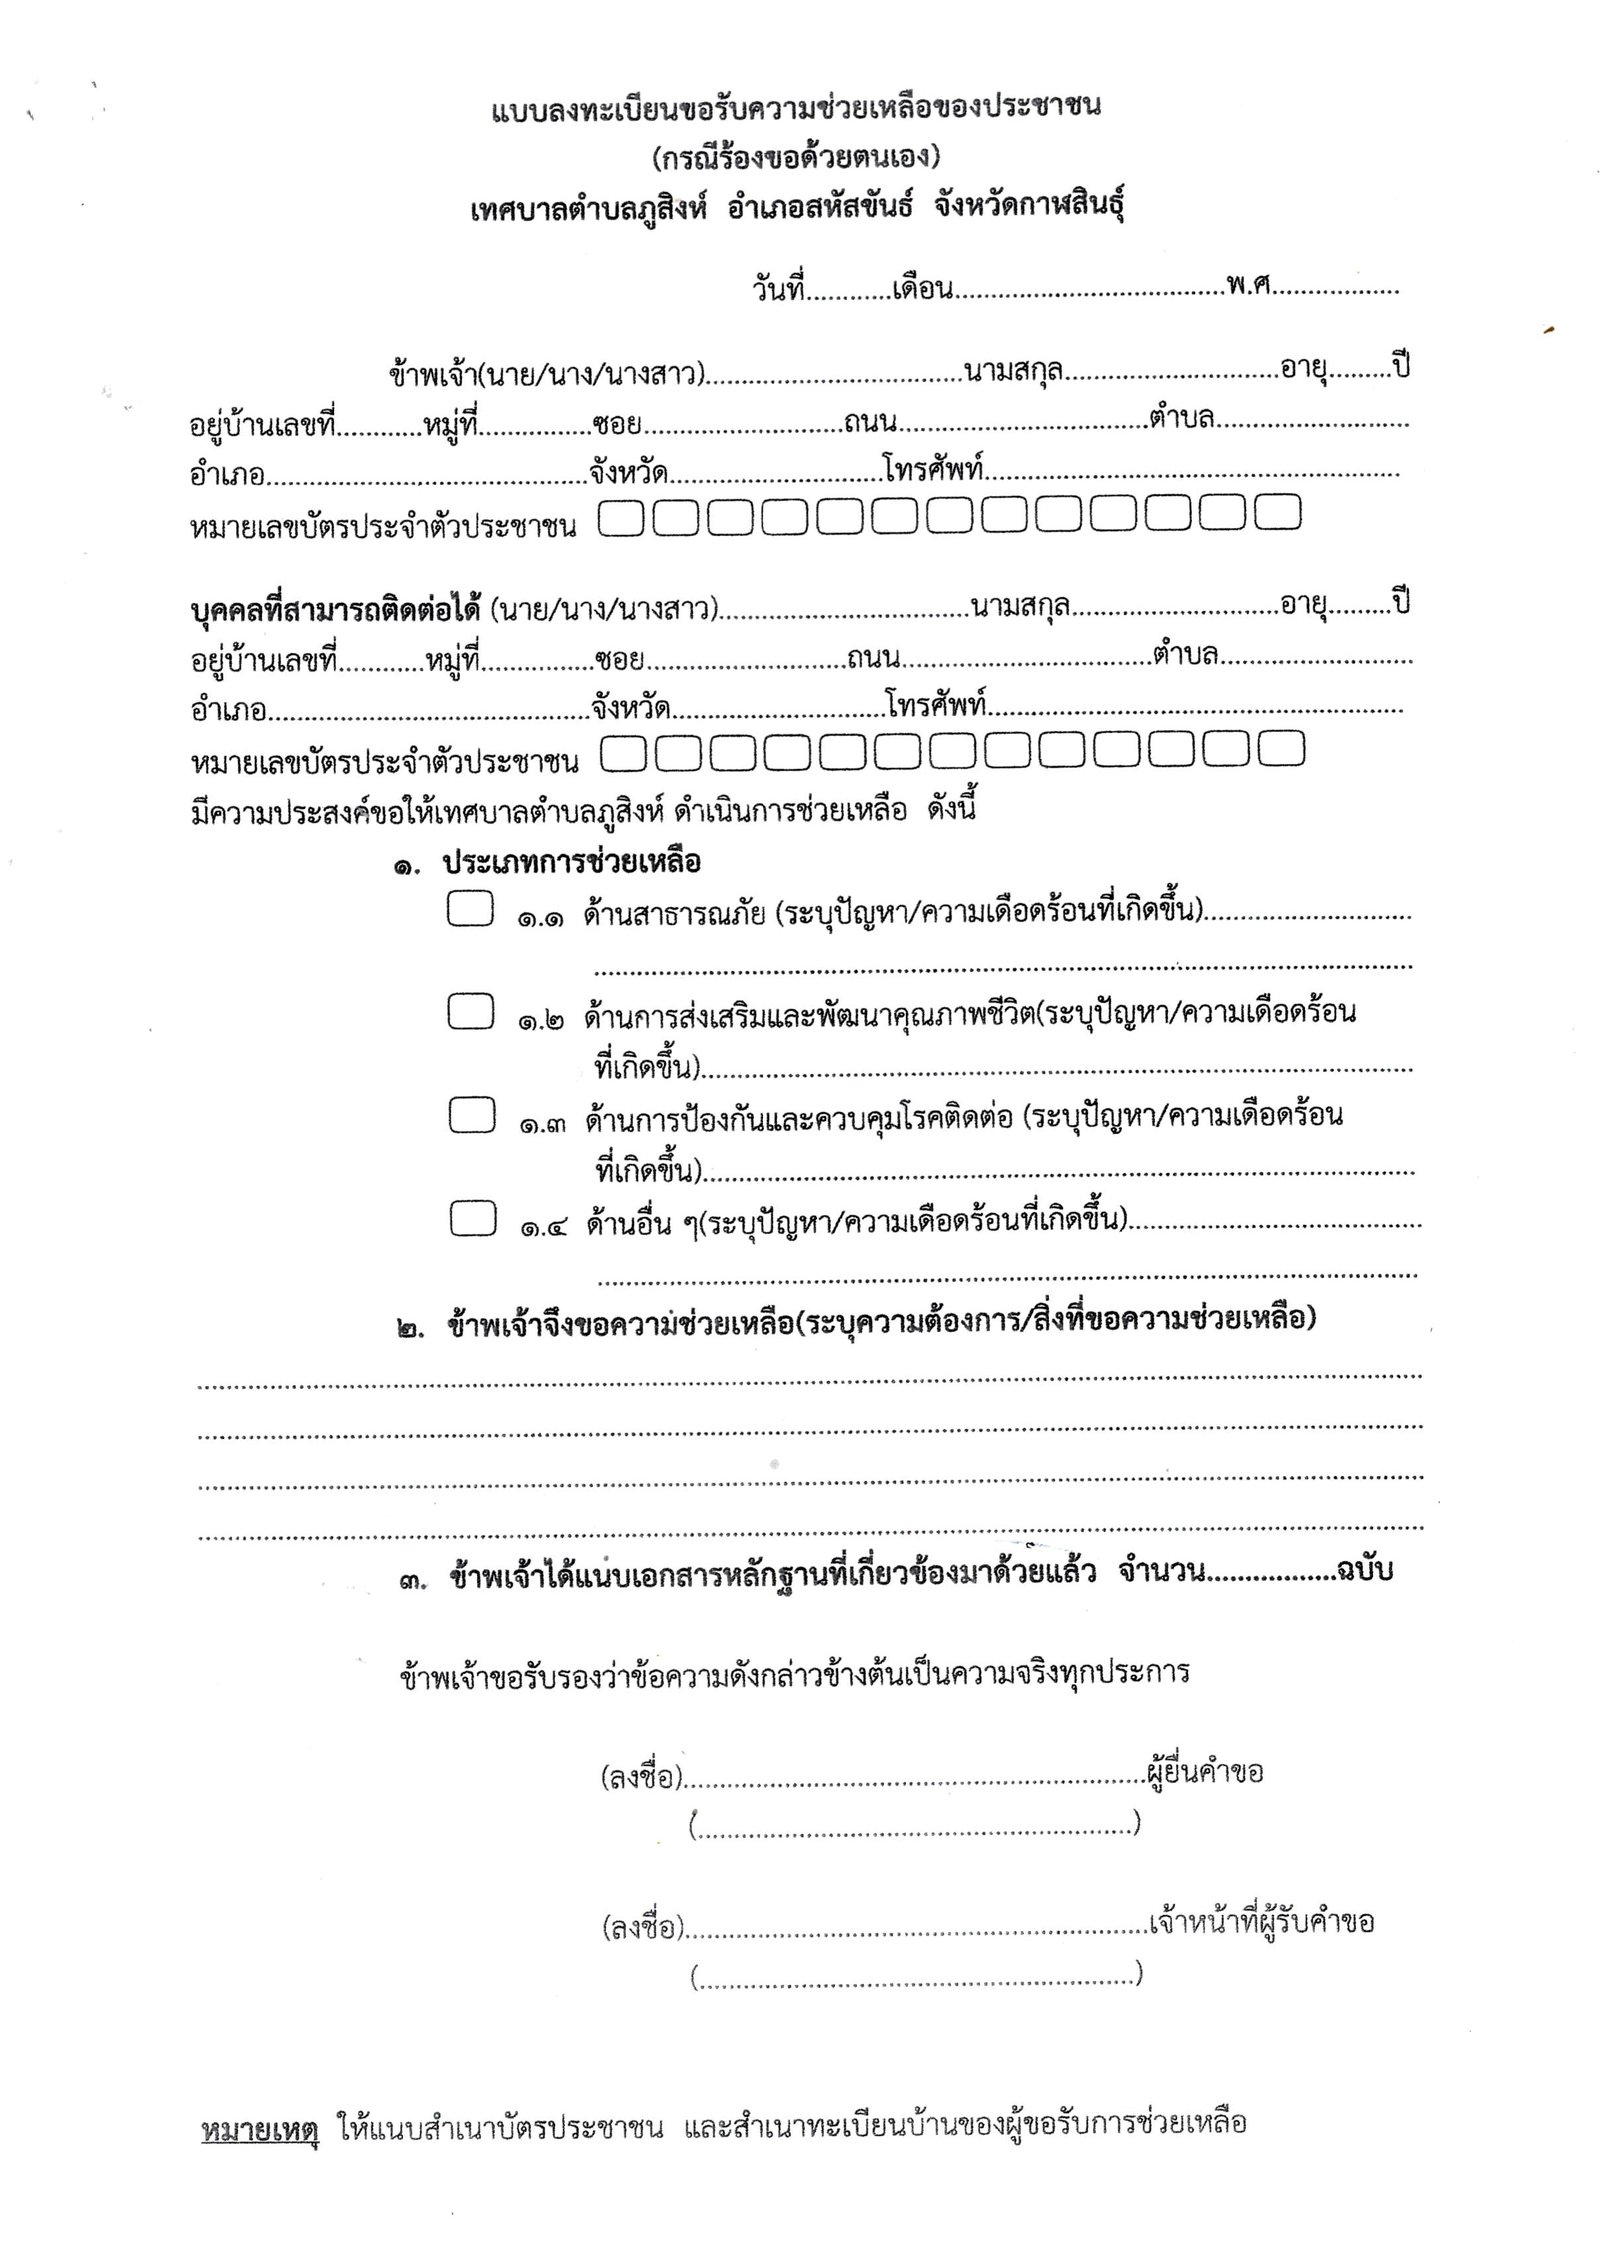 แบบลงทะเบียนขอรับความช่วยเหลือของประชาชน
(กรณีร้องขอด้วยตนเอง)
เทศบาลตำบลภูสิงห์ อำเภอสหัสขันธ์ จังหวัดกาฬสินธุ์
วันที่............เดือน......................................พ.ศ..................
ข้าพเจ้า(นาย/นาง/นางสาว)....................................นามสกุล..............................อายุ.........ปี
อยู่บ้านเลขที่............หมู่ที่................ซอย............................ถนน...................................ตำบล...........................
อำเภอ.............................................จังหวัด..............................โทรศัพท์..........................................................
หมายเลขบัตรประจำตัวประชาชน
บุคคลที่สามารถติดต่อได้ (นาย/นาง/นางสาว)...................................นามสกุล.............................อายุ.........ปี
อยู่บ้านเลขที่............หมู่ที่................ซอย............................ถนน...................................ตำบล...........................
อำเภอ.............................................จังหวัด..............................โทรศัพท์..........................................................
หมายเลขบัตรประจำตัวประชาชน
มีความประสงค์ขอให้เทศบาลตำบลภูสิงห์ ดำเนินการช่วยเหลือ ดังนี้
๑. ประเภทการช่วยเหลือ
๑.๑ ด้านสาธารณภัย (ระบุปัญหา/ความเดือดร้อนที่เกิดขึ้น).............................
..................................................................................................................
๑.๒ ด้านการส่งเสริมและพัฒนาคุณภาพชีวิต(ระบุปัญหา/ความเดือดร้อน
ที่เกิดขึ้น)...................................................................................................
๑.๓ ด้านการป้องกันและควบคุมโรคติดต่อ (ระบุปัญหา/ความเดือดร้อน
ที่เกิดขึ้น)...................................................................................................
๑.๔ ด้านอื่น ๆ(ระบุปัญหา/ความเดือดร้อนที่เกิดขึ้น).........................................
..................................................................................................................
๒. ข้าพเจ้าจึงขอความช่วยเหลือ(ระบุความต้องการ/สิ่งที่ขอความช่วยเหลือ)
..........................................................................................................................................................................
..........................................................................................................................................................................
..........................................................................................................................................................................
..........................................................................................................................................................................
๓. ข้าพเจ้าได้แนบเอกสารหลักฐานที่เกี่ยวข้องมาด้วยแล้ว จำนวน.................ฉบับ
ข้าพเจ้าขอรับรองว่าข้อความดังกล่าวข้างต้นเป็นความจริงทุกประการ
(ลงชื่อ).................................................................ผู้ยื่นคำขอ
(.............................................................)
(ลงชื่อ).................................................................เจ้าหน้าที่ผู้รับคำขอ
(.............................................................)
หมายเหตุ ให้แนบสำเนาบัตรประชาชน และสำเนาทะเบียนบ้านของผู้ขอรับการช่วยเหลือ